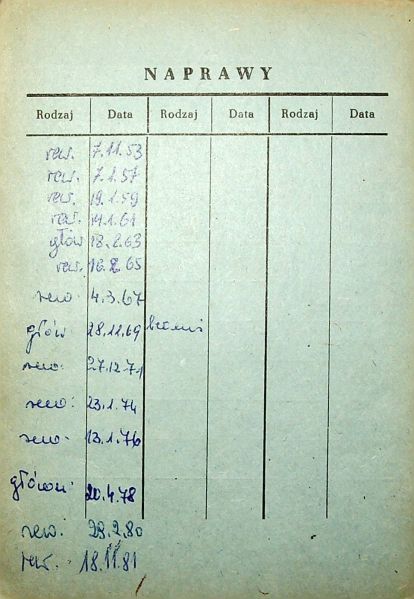 NAPRAWY
Rodzaj Data Rodzaj Data Rodzaj Data
rew. 7.11.53
rew. 7.1.57
rew. 19.1.59
rew. 14.1.61
głów 18.2.63
rew. 16.2.65
rewo: 4.3.67
głów 28.11.69
rewo: 27.12.71
rewo: 23.1.74
rewo: 13.1.76
główna: 20.4.78
rew. 28.2.80
rew. 18.11.81